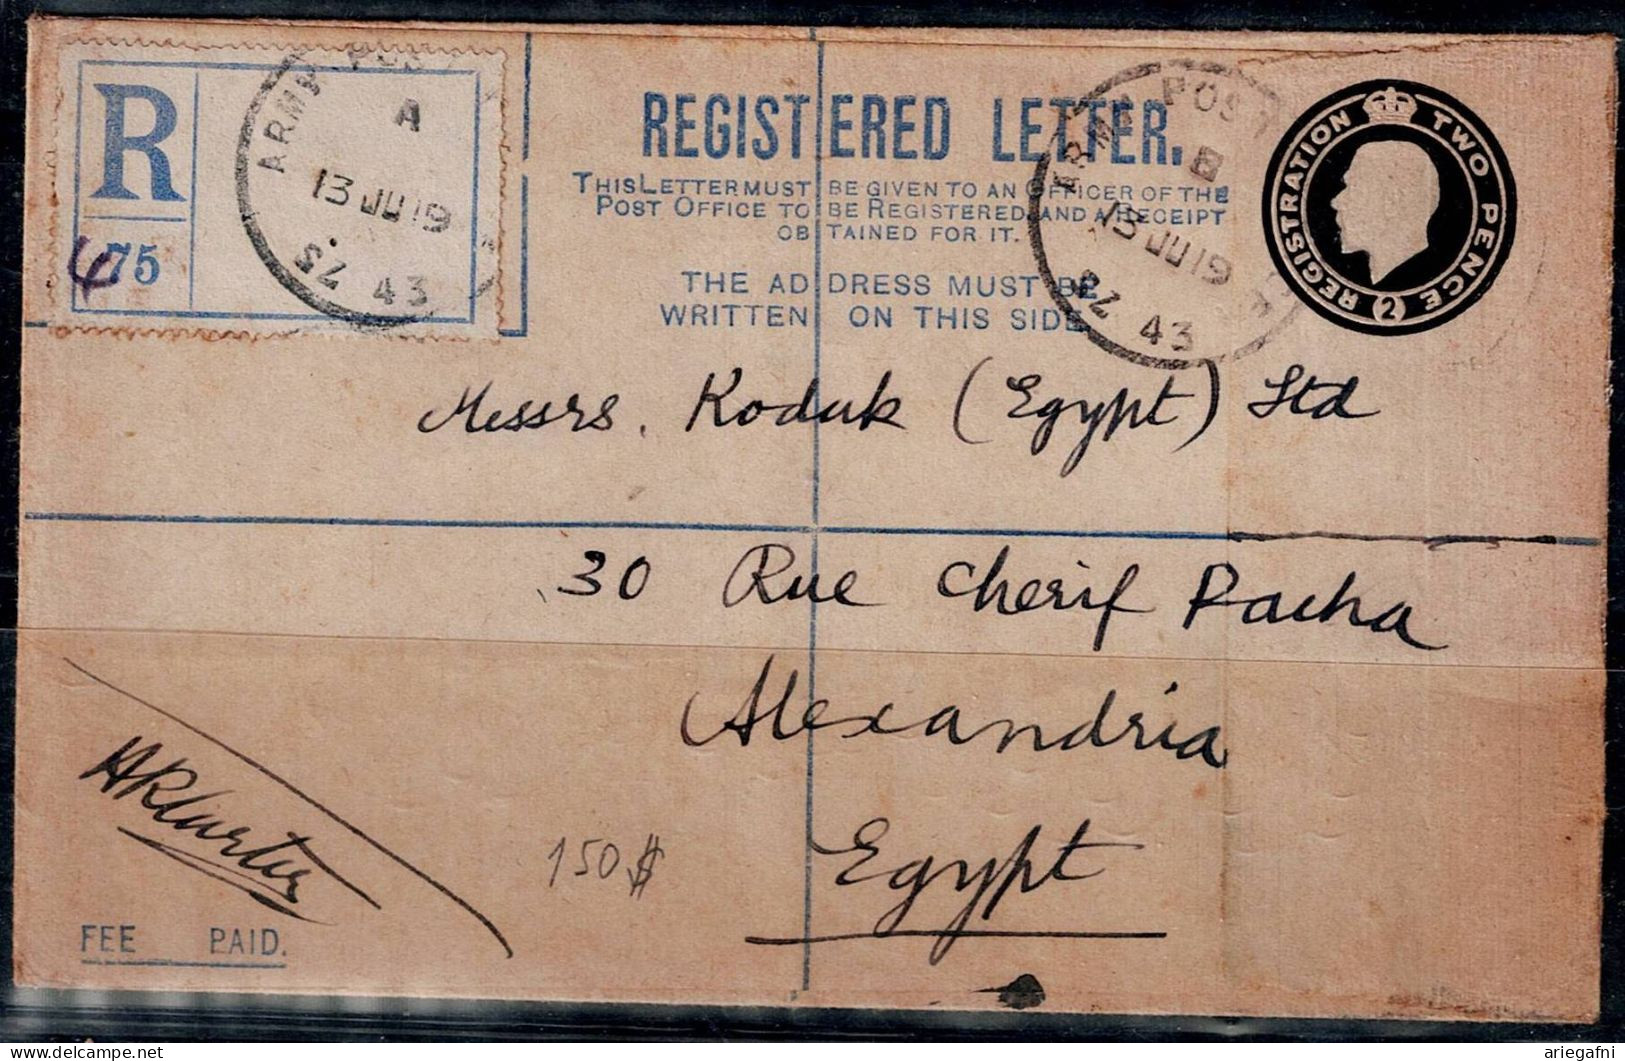 R
475
ARMY POST
A
13 JU 19
SZ 43
REGISTERED LETTER.
THIS LETTER MUST BE GIVEN TO AN OFFICER OF THE
POST OFFICE TO BE REGISTERED, AND A RECEIPT
OBTAINED FOR IT.
THE ADDRESS MUST BE
WRITTEN ON THIS SIDE
ARMY POST
B
13 JU 19
SZ 43
REGISTRATION TWO PENCE
2
Messrs. Kodak (Egypt) Ltd
30 Rue Cherif Pacha
Alexandria
Egypt
150$
FEE PAID.
ariegafni